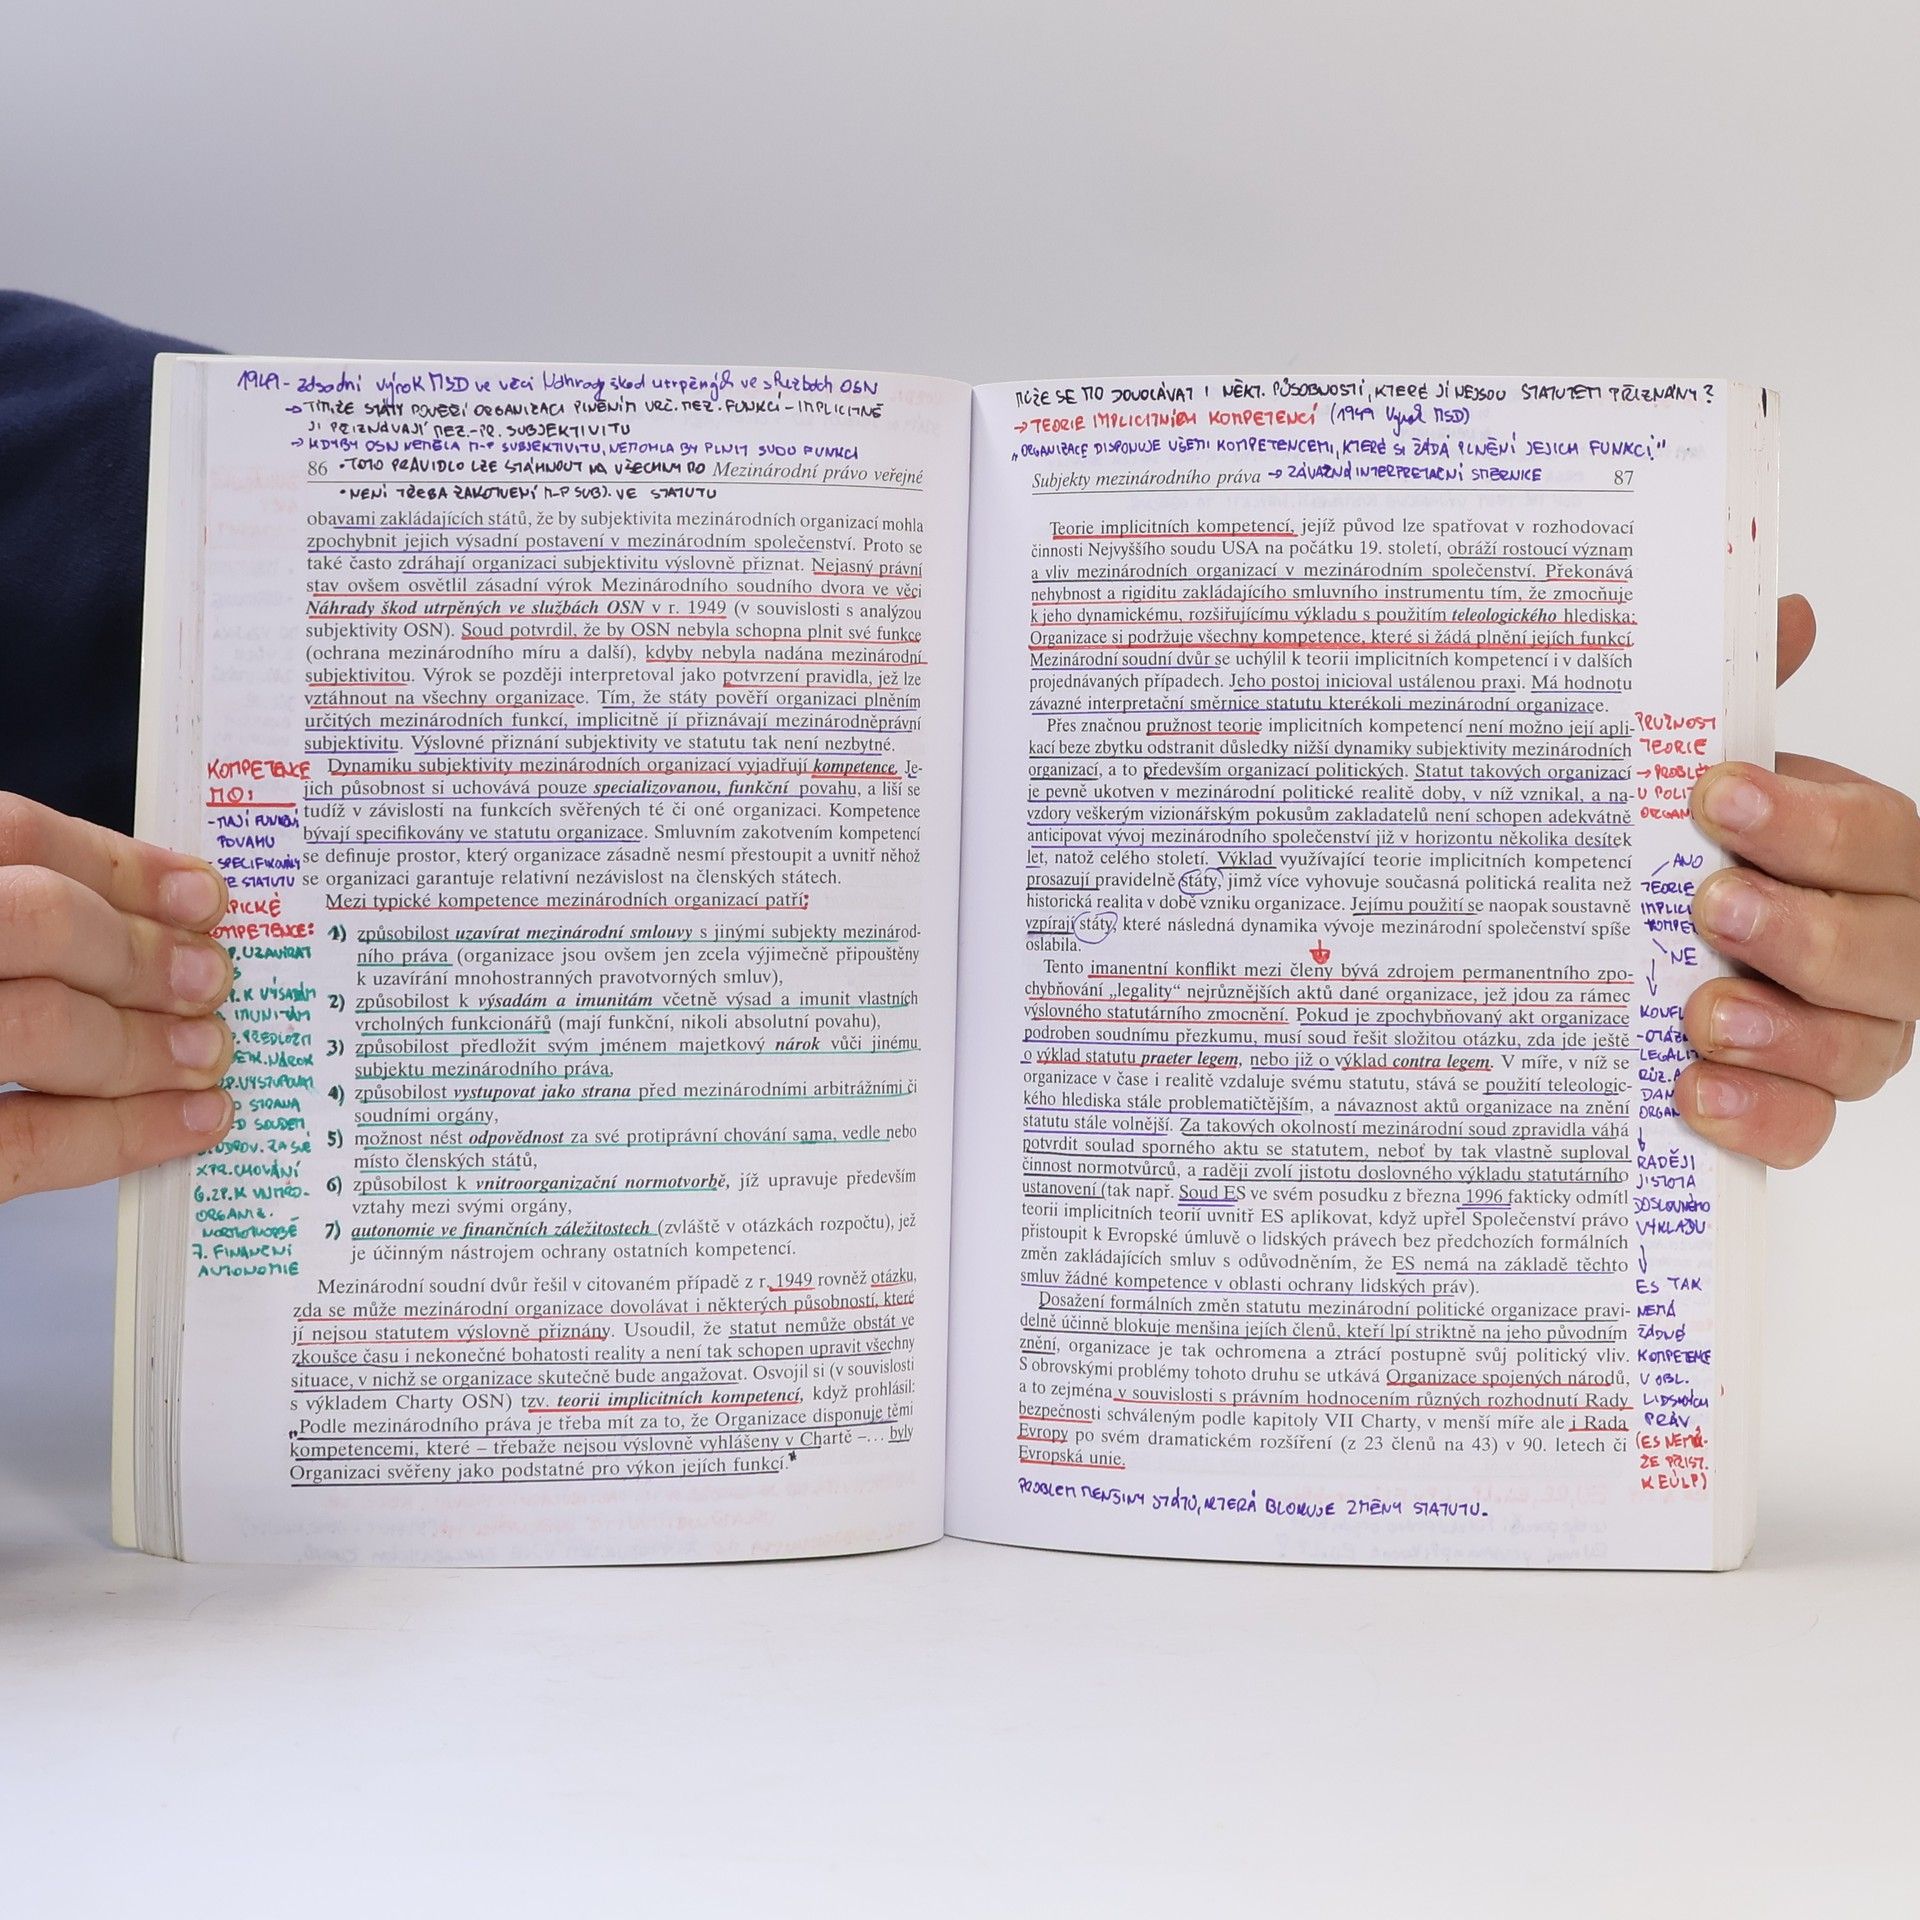 1949 - zásadní výrok MSD ve věci Náhrady škod utrpěných ve službách OSN
→ TÍM, ŽE STÁTY POVĚŘÍ ORGANIZACI PLNĚNÍM URČ. MEZ. FUNKCÍ - IMPLICITNĚ
JÍ PŘIZNÁVAJÍ MEZ.-PR. SUBJEKTIVITU
→ KDYBY OSN NEMĚLA M-P SUBJEKTIVITU, NEMOHLA BY PLNIT SVOU FUNKCI
86 • TOTO PRAVIDLO LZE VTÁHNOUT NA VŠECHNY MO Mezinárodní právo veřejné
• NENÍ TŘEBA ZAKOTVENÍ M-P SUBJ. VE STATUTU
obavami zakládajících států, že by subjektivita mezinárodních organizací mohla
zpochybnit jejich výsadní postavení v mezinárodním společenství. Proto se
také často zdráhají organizaci subjektivitu výslovně přiznat. Nejasný právní
stav ovšem osvětlil zásadní výrok Mezinárodního soudního dvora ve věci
Náhrady škod utrpěných ve službách OSN v r. 1949 (v souvislosti s analýzou
subjektivity OSN). Soud potvrdil, že by OSN nebyla schopna plnit své funkce
(ochrana mezinárodního míru a další), kdyby nebyla nadána mezinárodní
subjektivitou. Výrok se později interpretoval jako potvrzení pravidla, jež lze
vztáhnout na všechny organizace. Tím, že státy pověří organizaci plněním
určitých mezinárodních funkcí, implicitně jí přiznávají mezinárodněprávní
subjektivitu. Výslovné přiznání subjektivity ve statutu tak není nezbytné.
Dynamiku subjektivity mezinárodních organizací vyjadřují kompetence. Je-
jich působnost si uchovává pouze specializovanou, funkční povahu, a liší se
tudíž v závislosti na funkcích svěřených té či oné organizaci. Kompetence
bývají specifikovány ve statutu organizace. Smluvním zakotvením kompetencí
se definuje prostor, který organizace zásadně nesmí přestoupit a uvnitř něhož
se organizaci garantuje relativní nezávislost na členských státech.
Mezi typické kompetence mezinárodních organizací patří:
1) způsobilost uzavírat mezinárodní smlouvy s jinými subjekty mezinárod-
ního práva (organizace jsou ovšem jen zcela výjimečně připouštěny
k uzavírání mnohostranných pravotvorných smluv),
2) způsobilost k výsadám a imunitám včetně výsad a imunit vlastních
vrcholných funkcionářů (mají funkční, nikoli absolutní povahu),
3) způsobilost předložit svým jménem majetkový nárok vůči jinému
subjektu mezinárodního práva,
4) způsobilost vystupovat jako strana před mezinárodními arbitrážními či
soudními orgány,
5) možnost nést odpovědnost za své protiprávní chování sama, vedle nebo
místo členských států,
6) způsobilost k vnitroorganizační normotvorbě, jíž upravuje především
vztahy mezi svými orgány,
7) autonomie ve finančních záležitostech (zvláště v otázkách rozpočtu), jež
je účinným nástrojem ochrany ostatních kompetencí.
Mezinárodní soudní dvůr řešil v citovaném případě z r. 1949 rovněž otázku,
zda se může mezinárodní organizace dovolávat i některých působností, které
jí nejsou statutem výslovně přiznány. Usoudil, že statut nemůže obstát ve
zkoušce času i nekonečné bohatosti reality a není tak schopen upravit všechny
situace, v nichž se organizace skutečně bude angažovat. Osvojil si (v souvislosti
s výkladem Charty OSN) tzv. teorii implicitních kompetencí, když prohlásil:
„Podle mezinárodního práva je třeba mít za to, že Organizace disponuje těmi
kompetencemi, které – třebaže nejsou výslovně vyhlášeny v Chartě –… byly
Organizaci svěřeny jako podstatné pro výkon jejích funkcí."
KOMPETENCE
MO:
- MAJÍ FUNKČNÍ
POVAHU
- SPECIFIKOVÁNY
VE STATUTU
PICKÉ
OMPETENCE:
P. UZAVÍRAT
P. K VÝSADÁM
A IMUNITÁM
P. PŘEDLOŽIT
NÁROK
P. VYSTUPOVAT
O STRANA
ED SOUDEM
ODPOV. ZA SVÉ
XPR. CHOVÁNÍ
6. ZP. K VNITRO-
ORGANIZ.
NORMOTVORBĚ
7. FINANČNÍ
AUTONOMIE
MŮŽE SE MO DOVOLÁVAT I NĚKT. PŮSOBNOSTÍ, KTERÉ JÍ NEJSOU STATUTEM PŘIZNÁNY?
→ TEORIE IMPLICITNÍCH KOMPETENCÍ (1949 Výrok MSD)
„ORGANIZACE DISPONUJE VŠEMI KOMPETENCEMI, KTERÉ SI ŽÁDÁ PLNĚNÍ JEJICH FUNKCÍ."
Subjekty mezinárodního práva → ZÁVAZNÁ INTERPRETAČNÍ SMĚRNICE 87
Teorie implicitních kompetencí, jejíž původ lze spatřovat v rozhodovací
činnosti Nejvyššího soudu USA na počátku 19. století, obráží rostoucí význam
a vliv mezinárodních organizací v mezinárodním společenství. Překonává
nehybnost a rigiditu zakládajícího smluvního instrumentu tím, že zmocňuje
k jeho dynamickému, rozšiřujícímu výkladu s použitím teleologického hlediska:
Organizace si podržuje všechny kompetence, které si žádá plnění jejích funkcí.
Mezinárodní soudní dvůr se uchýlil k teorii implicitních kompetencí i v dalších
projednávaných případech. Jeho postoj inicioval ustálenou praxi. Má hodnotu
závazné interpretační směrnice statutu kterékoli mezinárodní organizace.
Přes značnou pružnost teorie implicitních kompetencí není možno její apli-
kací beze zbytku odstranit důsledky nižší dynamiky subjektivity mezinárodních
organizací, a to především organizací politických. Statut takových organizací
je pevně ukotven v mezinárodní politické realitě doby, v níž vznikal, a na-
vzdory veškerým vizionářským pokusům zakladatelů není schopen adekvátně
anticipovat vývoj mezinárodního společenství již v horizontu několika desítek
let, natož celého století. Výklad využívající teorie implicitních kompetencí
prosazují pravidelně státy, jimž více vyhovuje současná politická realita než
historická realita v době vzniku organizace. Jejímu použití se naopak soustavně
vzpírají státy, které následná dynamika vývoje mezinárodní společenství spíše
oslabila.
Tento imanentní konflikt mezi členy bývá zdrojem permanentního zpo-
chybňování „legality" nejrůznějších aktů dané organizace, jež jdou za rámec
výslovného statutárního zmocnění. Pokud je zpochybňovaný akt organizace
podroben soudnímu přezkumu, musí soud řešit složitou otázku, zda jde ještě
o výklad statutu praeter legem, nebo již o výklad contra legem. V míře, v níž se
organizace v čase i realitě vzdaluje svému statutu, stává se použití teleologic-
kého hlediska stále problematičtějším, a návaznost aktů organizace na znění
statutu stále volnější. Za takových okolností mezinárodní soud zpravidla váhá
potvrdit soulad sporného aktu se statutem, neboť by tak vlastně suploval
činnost normotvůrců, a raději zvolí jistotu doslovného výkladu statutárního
ustanovení (tak např. Soud ES ve svém posudku z března 1996 fakticky odmítl
teorii implicitních teorií uvnitř ES aplikovat, když upřel Společenství právo
přistoupit k Evropské úmluvě o lidských právech bez předchozích formálních
změn zakládajících smluv s odůvodněním, že ES nemá na základě těchto
smluv žádné kompetence v oblasti ochrany lidských práv).
Dosažení formálních změn statutu mezinárodní politické organizace pravi-
delně účinně blokuje menšina jejích členů, kteří lpí striktně na jeho původním
znění, organizace je tak ochromena a ztrácí postupně svůj politický vliv.
S obrovskými problémy tohoto druhu se utkává Organizace spojených národů,
a to zejména v souvislosti s právním hodnocením různých rozhodnutí Rady
bezpečnosti schváleným podle kapitoly VII Charty, v menší míře ale i Rada
Evropy po svém dramatickém rozšíření (z 23 členů na 43) v 90. letech či
Evropská unie.
PROBLÉM MENŠINY STÁTŮ, KTERÁ BLOKUJE ZMĚNY STATUTU.
PRUŽNOST
TEORIE
→ PROBLÉ
U POLIT
ORGAN
ANO
TEORIE
IMPLICI
KOMPET
NE
KONFL
- OTÁZ
LEGALI
RŮZ. A
DAN
ORGAN
RADĚJI
JISTOTA
DOSLOVNÉHO
VÝKLADU
ES TAK
NEMÁ
ŽÁDNÉ
KOMPETENCE
V OBL.
LIDSKÝCH
PRÁV
(ES NEMŮ-
ŽE PŘIST.
K EÚLP)